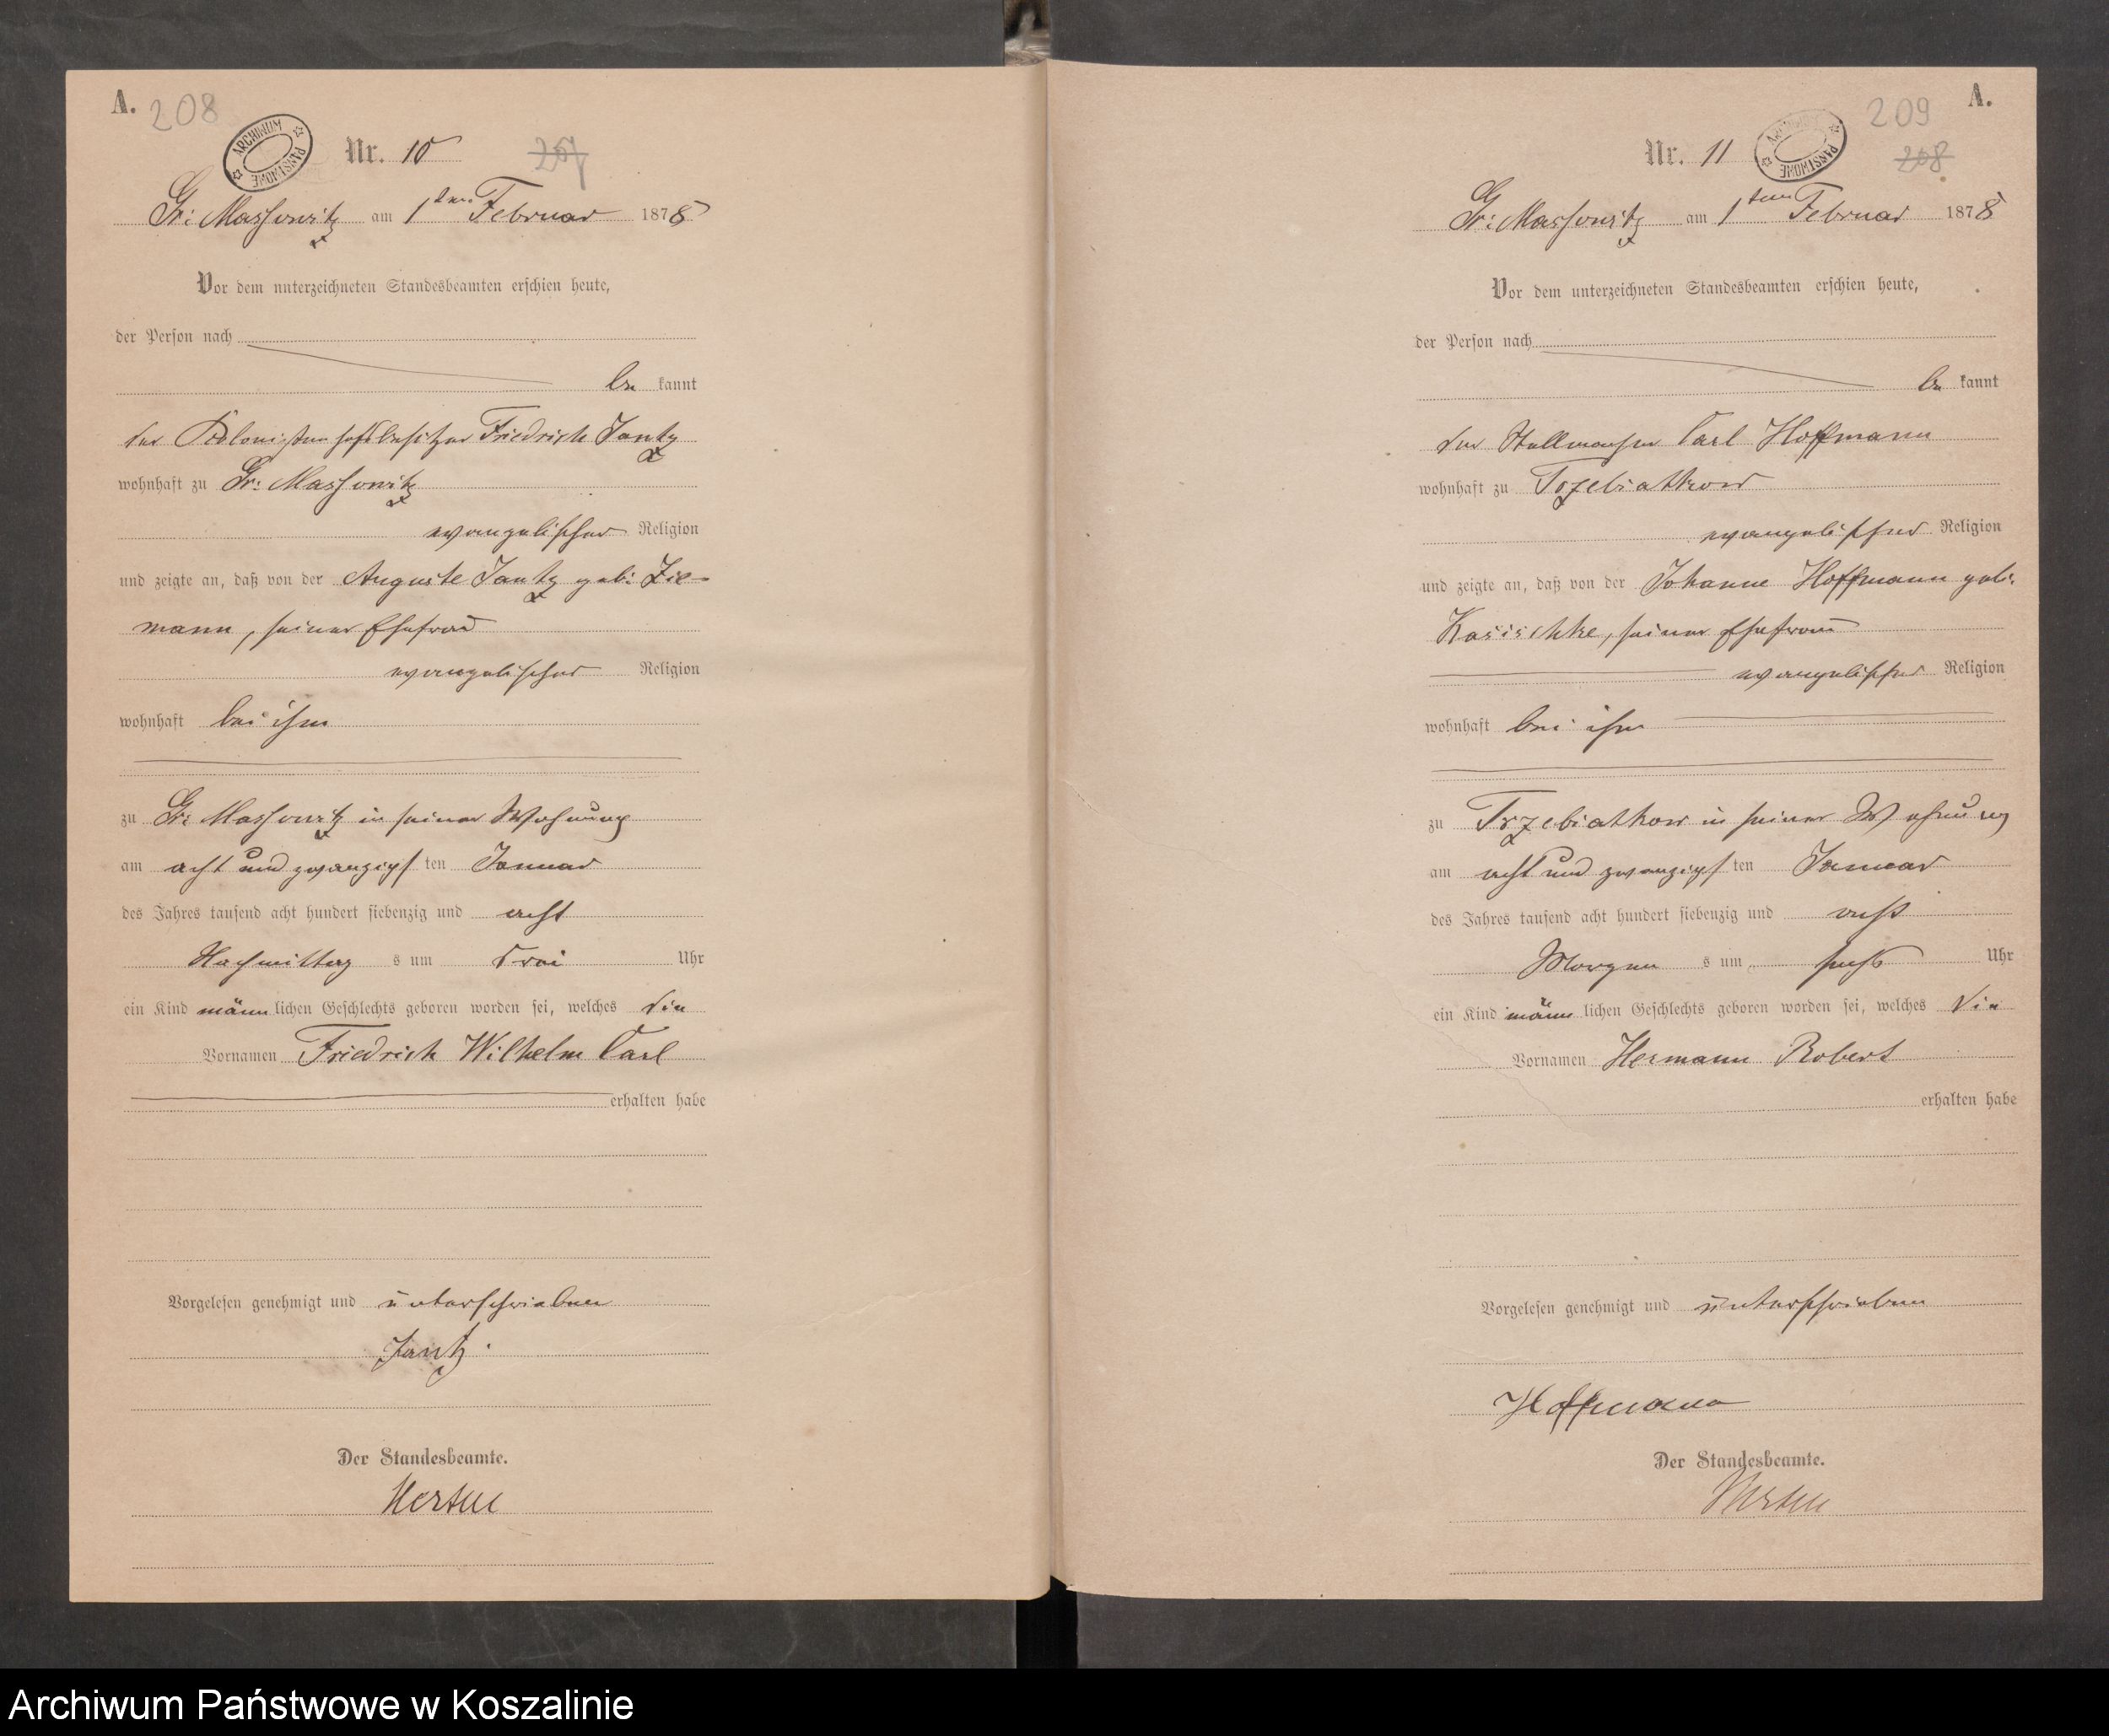 A. 208
ARCHIWUM PAŃSTWOWE
Nr. 10 207
Gr: Massowitz am 1ten Februar 1878
Vor dem unterzeichneten Standesbeamten erschien heute,
der Person nach
be kannt
der Kolonistenhofsbesitzer Friedrich Jantz
wohnhaft zu Gr: Massowitz
evangelischer Religion
und zeigte an, daß von der Auguste Jantz geb: Zie-
mann, seiner Ehefrau
evangelischer Religion
wohnhaft bei ihm
zu Gr: Massowitz in seiner Wohnung
am acht und zwanzigs ten Januar
des Jahres tausend acht hundert siebenzig und acht
Nachmittag s um drei Uhr
ein Kind männ lichen Geschlechts geboren worden sei, welches die
Vornamen Friedrich Wilhelm Carl
erhalten habe
Vorgelesen genehmigt und unterschrieben
Jantz.
Der Standesbeamte.
A.
209
Nr. 11 208
ARCHIWUM PAŃSTWOWE
Gr: Massowitz am 1ten Februar 1878
Vor dem unterzeichneten Standesbeamten erschien heute,
der Person nach
be kannt
der Stellmacher Carl Hoffmann
wohnhaft zu Trzebiatkow
evangelischer Religion
und zeigte an, daß von der Johanne Hoffmann geb:
Kasischke, seiner Ehefrau
evangelischer Religion
wohnhaft bei ihm
zu Trzebiatkow in seiner Wohnung
am acht und zwanzigs ten Januar
des Jahres tausend acht hundert siebenzig und acht
Morgen s um sechs Uhr
ein Kind männ lichen Geschlechts geboren worden sei, welches die
Vornamen Hermann Robert
erhalten habe
Vorgelesen genehmigt und unterschrieben
Hoffmann
Der Standesbeamte.
Archiwum Państwowe w Koszalinie